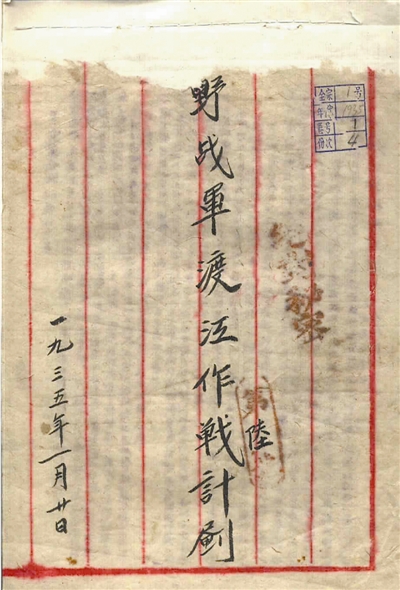 全宗 1号
年度 1935
1
4
秘密
第陸
野战軍渡江作戰計劃
一九三五年一月廿日